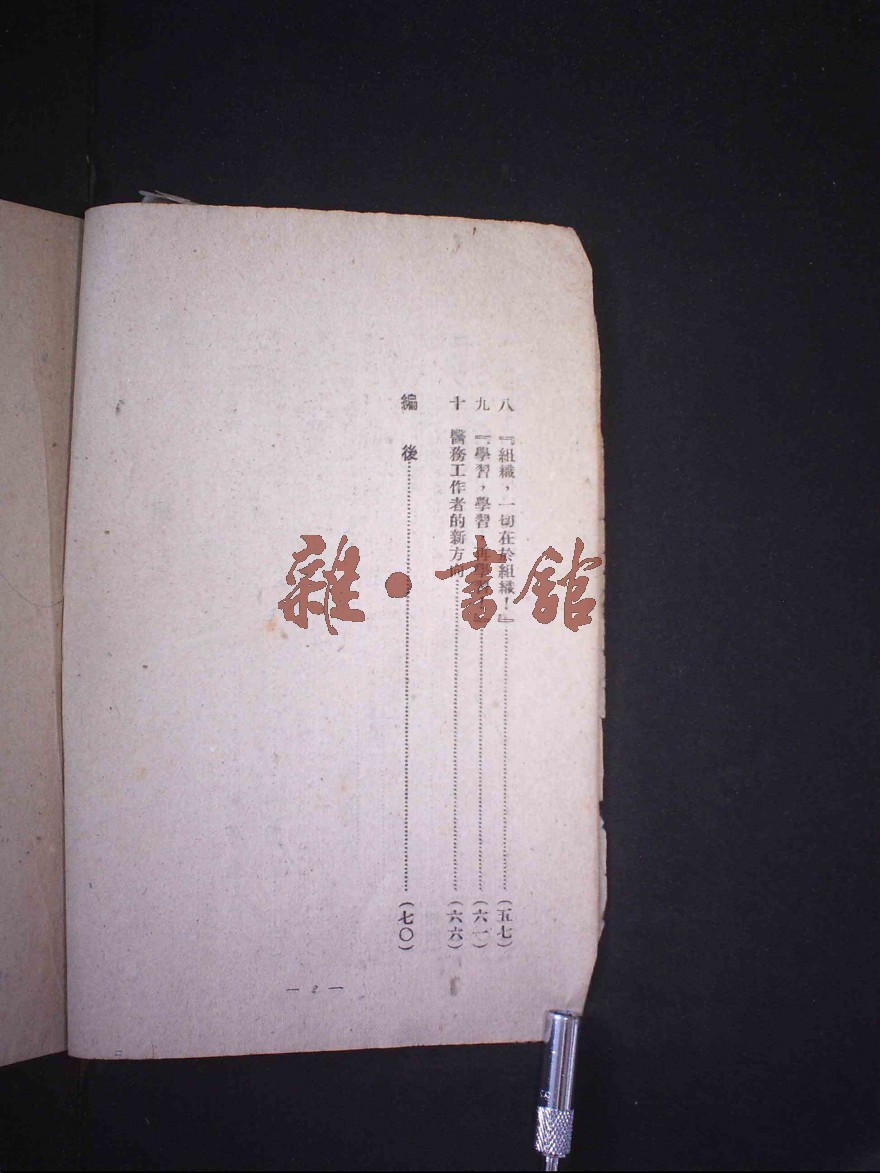 八 『組織，一切在於組織！』………(五七)
九 『學習，學習，再學習！』………(六一)
十 醫務工作者的新方向………(六六)
編 後………(七〇)
— 2 —
雜·書館